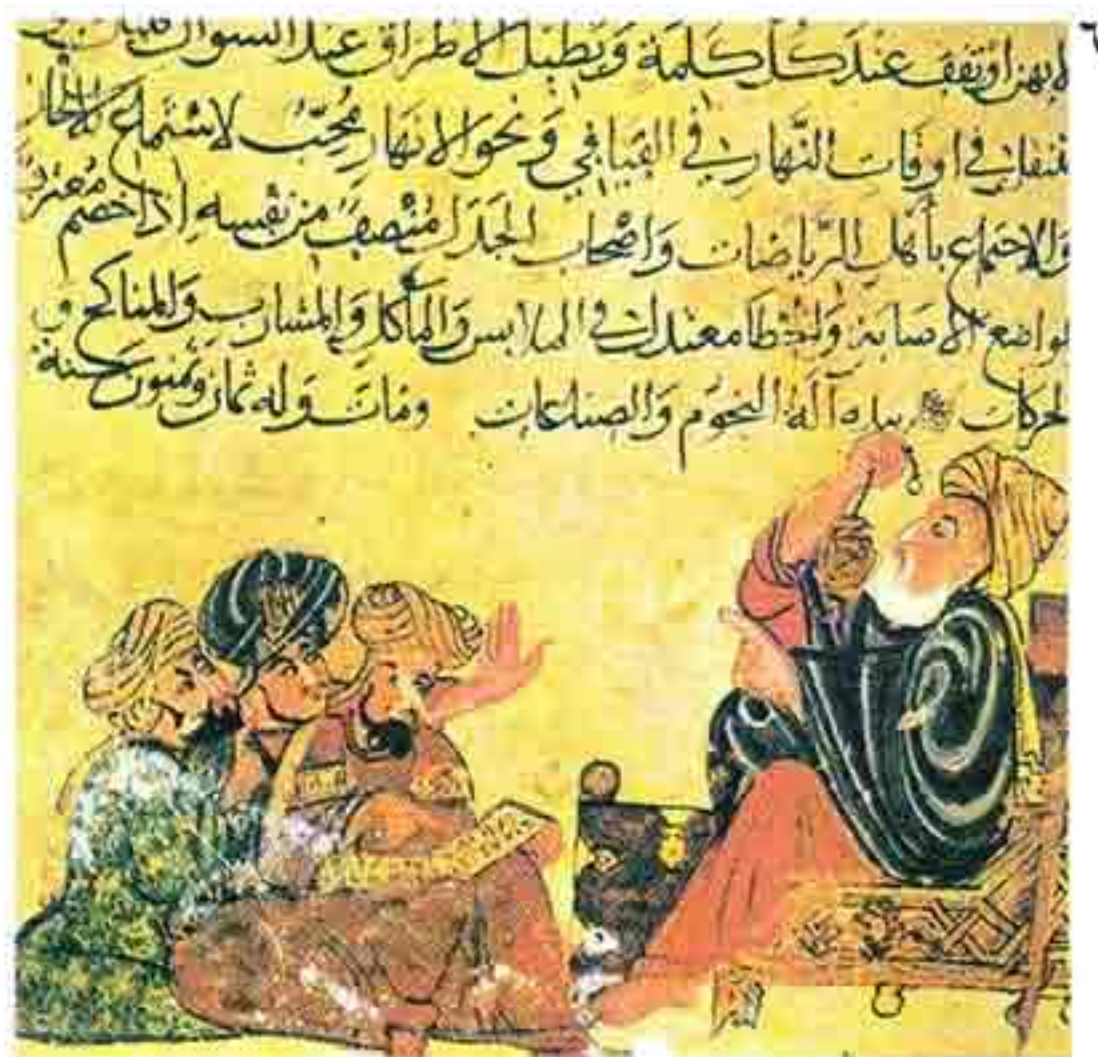 لا يهذ او يقف عند كل كلمة ويطيل الاطراق عند السوال
في اوقات النهار في الفيافي ونحو الانهار محبّ لاستماع
والاجتماع بأهل الرياضات واصحاب الجدل منصف من نفسه اذا خصم معترف
الاصابة والخطا معتدل في الملابس والمأكل والمشارب والمناكح و
الحركات بيده آلة النجوم والصناعات ومات وله ثمان وستون سنة
٦